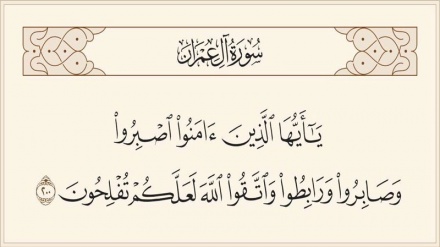 سُورَةُ آلِ عِمْرَان
يَـٰٓأَيُّهَا ٱلَّذِينَ ءَامَنُوا۟ ٱصْبِرُوا۟
وَصَابِرُوا۟ وَرَابِطُوا۟ وَٱتَّقُوا۟ ٱللَّهَ لَعَلَّكُمْ تُفْلِحُونَ ٢٠٠